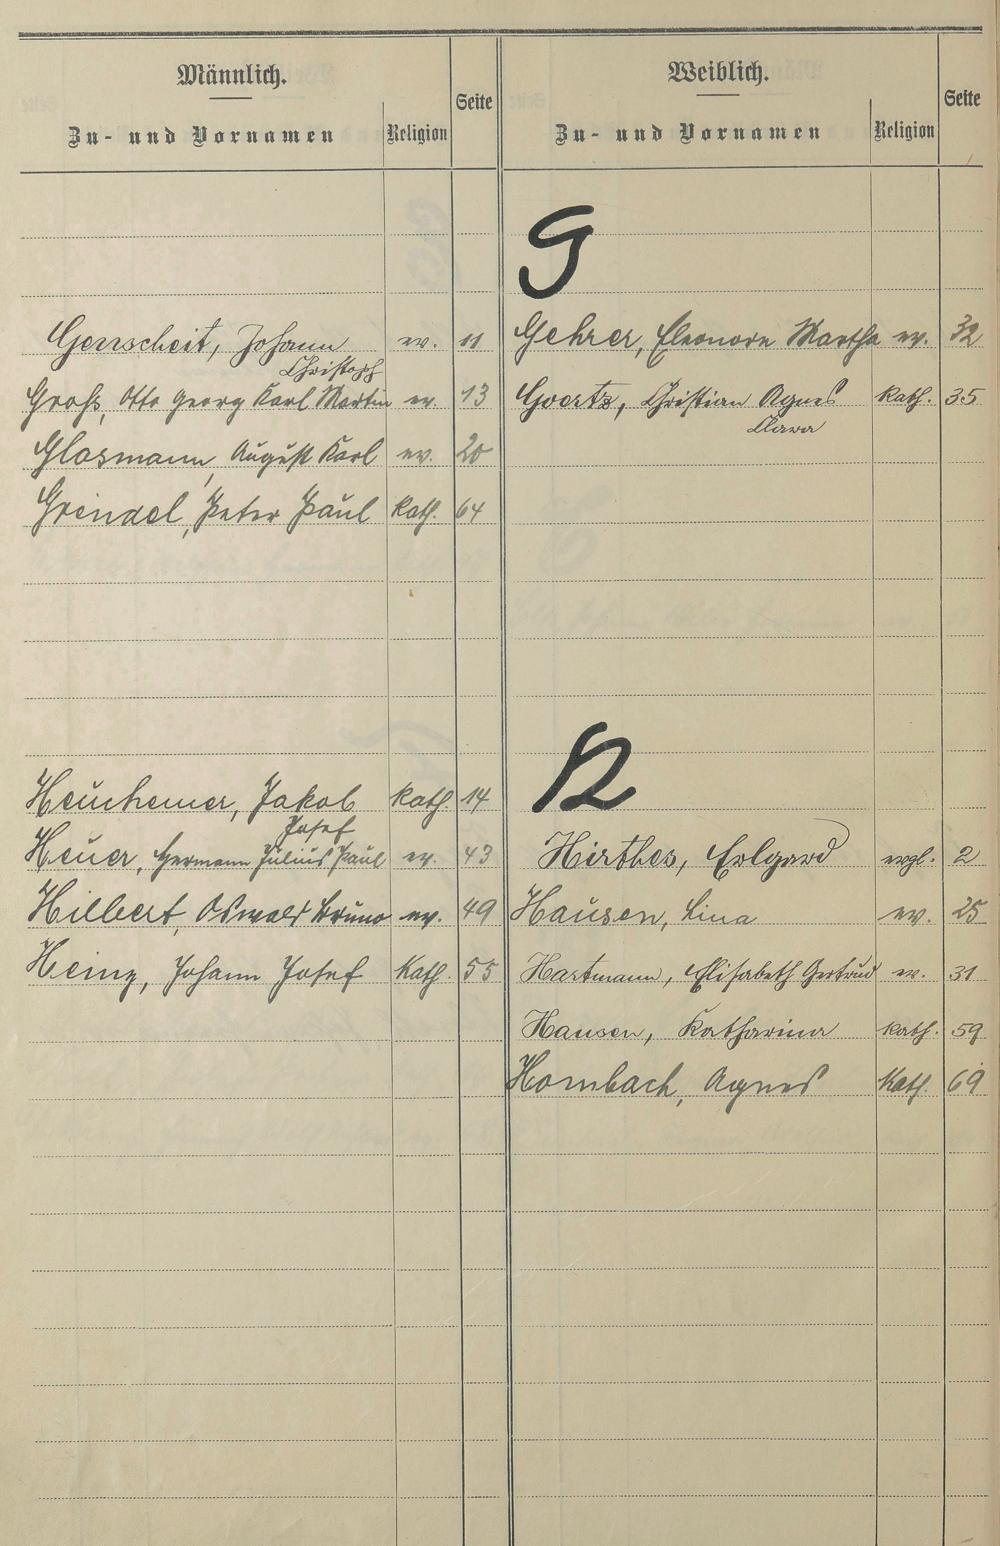 Männlich.
Zu- und Vornamen
Religion
Seite
Gerrscheit, Johann ev. 11
Christoph
Groß, Otto Georg Karl Martin ev. 13
Glasmann, August Karl ev. 20
Grendel, Peter Paul kath. 64
Heuchemer, Jakob kath. 14
Josef
Heuer, Hermann Julius Paul ev. 43
Hilbert, Oswald Bruno ev. 49
Heinz, Johann Josef Kath. 55
Weiblich.
Zu- und Vornamen
Religion
Seite
G
Gehrer, Eleonore Martha ev. 32
Goertz, Christian Agnes kath. 35
Klara
H
Hirthes, Erlgard evgl. 2
Hausen, Lina ev. 25
Hartmann, Elisabeth Gertrud ev. 31
Hausen, Katharina kath. 59
Hombach, Agnes Kath. 69